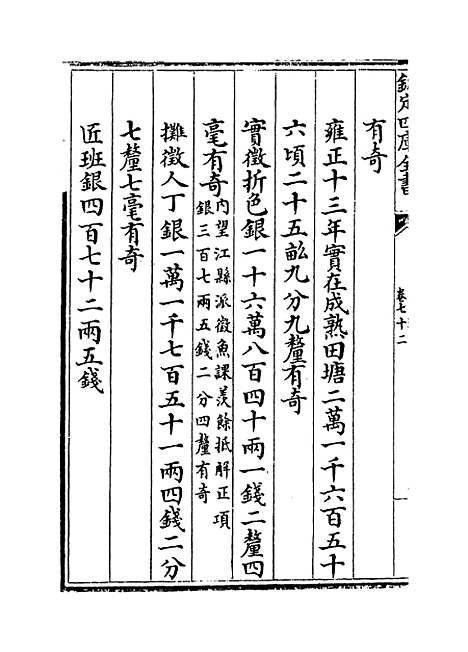 欽定四庫全書
卷七十二
有奇
雍正十三年實在成熟田塘二萬一千六百五十
六頃二十五畝九分九釐有奇
實徵折色銀一十六萬八百四十兩一錢二釐四
毫有奇內望江縣派徵魚課羨餘抵解正項
銀三百七兩五錢二分四釐有奇
攤徵人丁銀一萬一千七百五十一兩四錢二分
七釐七毫有奇
匠班銀四百七十二兩五錢